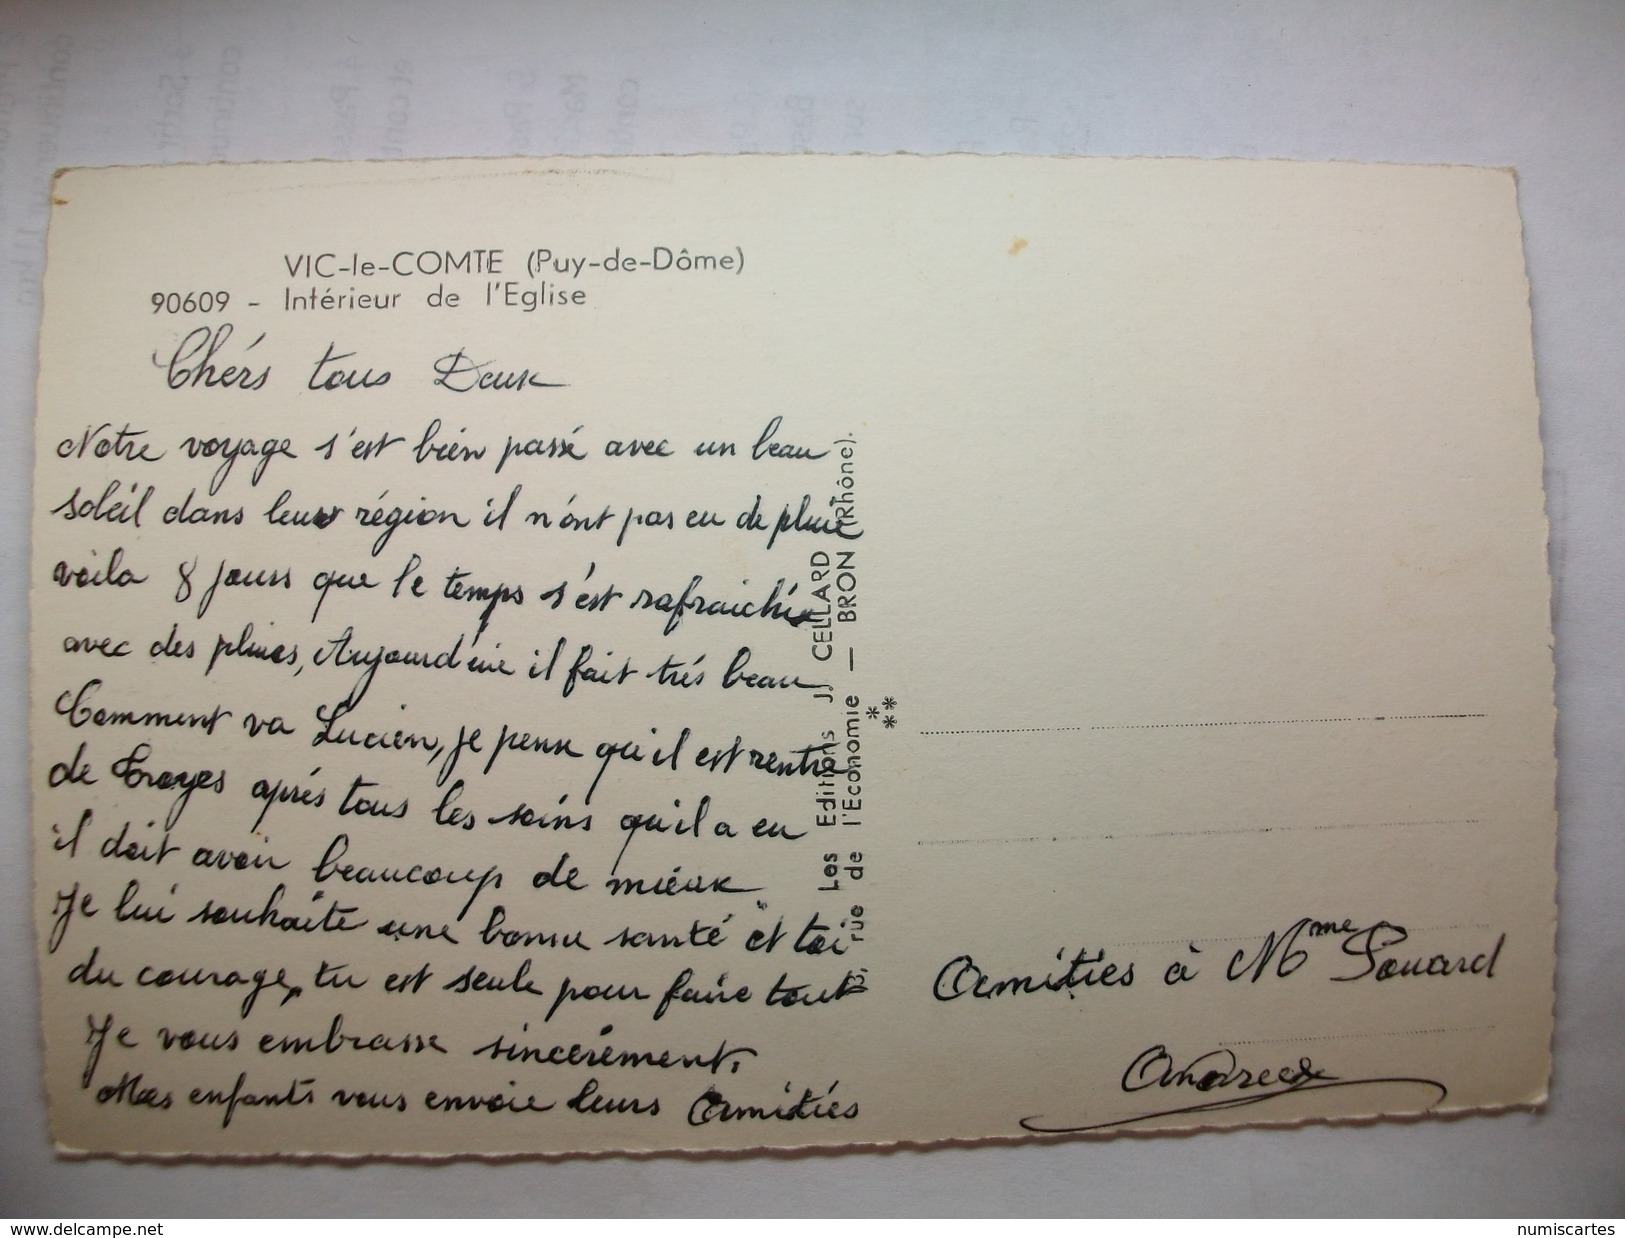 VIC-le-COMTE (Puy-de-Dôme)
90609 - Intérieur de l'Eglise
Chérs tous Deux
Notre voyage s'est bien passé avec un beau
soleil dans leurs région il n'ont pas eu de pluie
voila 8 jours que le temps s'est rafraichie
avec des pluies, Aujourd'uie il fait trés beau
Comment va Lucien, je pense qu'il est rentré
de Troyes aprés tous les soins qu'il a eu
il doit avoir beaucoup de mieux
Je lui souhaite une bonne santé et toi
du courage, tu est seule pour faire tout
Je vous embrasse sincérement.
Mes enfants vous envoie leurs Amitiés
Les Editions J. CELLARD
rue de l'Economie — BRON (Rhône).
*
**
Amitiés à Mme Souard
Andreé
www.delcampe.net
numiscartes